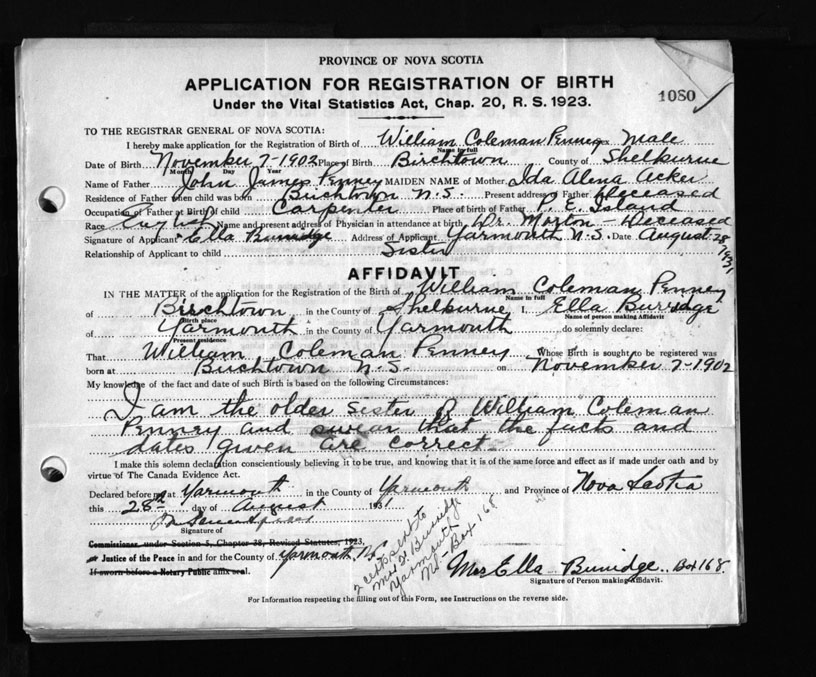 PROVINCE OF NOVA SCOTIA
APPLICATION FOR REGISTRATION OF BIRTH
Under the Vital Statistics Act, Chap. 20, R. S. 1923.
1080
TO THE REGISTRAR GENERAL OF NOVA SCOTIA:
I hereby make application for the Registration of Birth of William Coleman Penney Sex Male
Name in full
Date of Birth November 7-1902 Place of Birth Birchtown County of Shelburne
Month Day Year
Name of Father John James Penney MAIDEN NAME of Mother Ida Alena Acker
Residence of Father when child was born Birchtown N.S. Present address of Father Deceased
Occupation of Father at Birth of child Carpenter Place of birth of Father P. E. Island
Race English Name and present address of Physician in attendance at birth Dr. Morton - Deceased
Signature of Applicant Ella Burridge Address of Applicant Yarmouth N.S. Date August 28 1931
Relationship of Applicant to child Sister
AFFIDAVIT
IN THE MATTER of the application for the Registration of the Birth of William Coleman Penney
Name in full
of Birchtown in the County of Shelburne I, Ella Burridge
Birth place Name of person making Affidavit
of Yarmouth in the County of Yarmouth do solemnly declare:
Present residence
That William Coleman Penney Whose Birth is sought to be registered was
born at Birchtown N.S. on November 7-1902
My knowledge of the fact and date of such Birth is based on the following Circumstances:
I am the older sister of William Coleman
Penney and swear that the facts and
dates given are correct
I make this solemn declaration conscientiously believing it to be true, and knowing that it is of the same force and effect as if made under oath and by
virtue of The Canada Evidence Act.
Declared before me at Yarmouth in the County of Yarmouth and Province of Nova Scotia
this 28th day of August 1931
Signature of
Commissioner under Section 5, Chapter 38, Revised Statutes, 1923,
Justice of the Peace in and for the County of Yarmouth N.S.
If sworn before a Notary Public affix seal.
sent to
Mrs Burridge
Yarmouth
N.S. Box 168
Mrs Ella Burridge Box 168
Signature of Person making Affidavit.
For Information respecting the filling out of this Form, see Instructions on the reverse side.